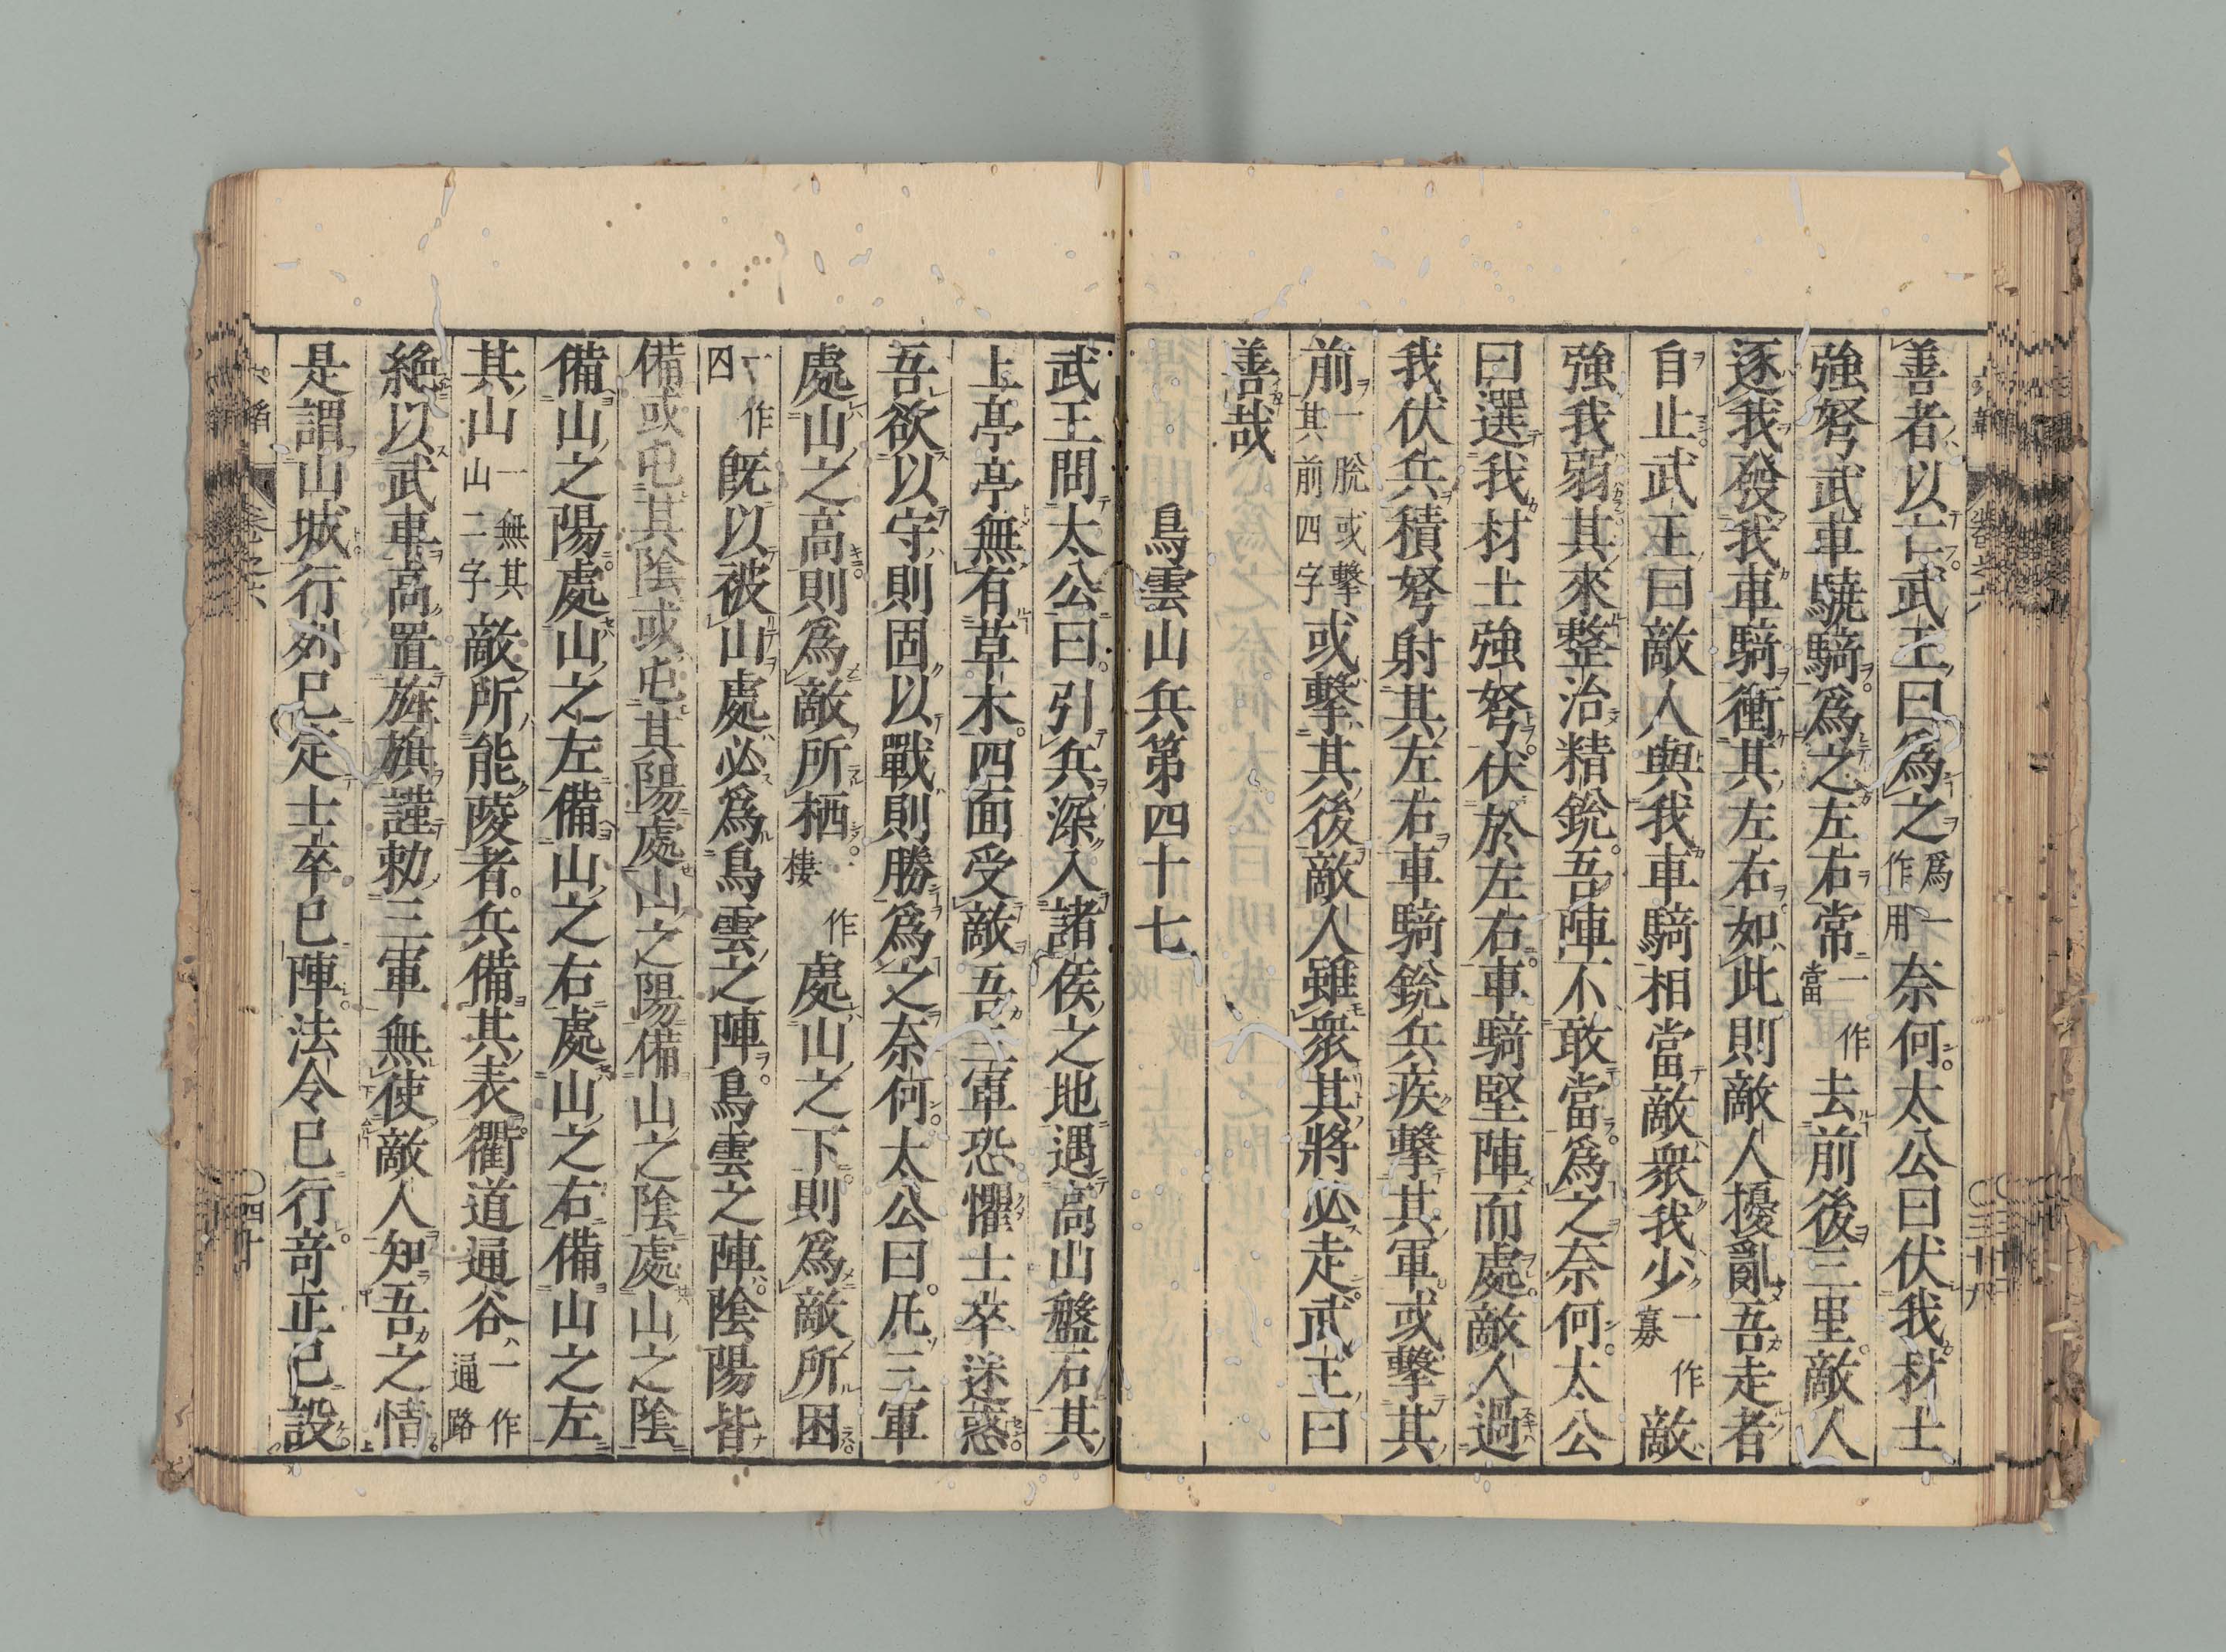 善者以亡武王曰爲之爲一作用奈何太公曰伏我材士
強弩武車驍騎爲之左右常一作當去前後三里敵人
逐我發我車騎衝其左右如此則敵人擾亂吾走者
自止武王曰敵人與我車騎相當敵衆我少一作寡敵
強我弱其來整治精銳吾陣不敢當爲之奈何太公
曰選我材士強弩伏於左右車騎堅陣而處敵人過
我伏兵積弩射其左右車騎銳兵疾擊其軍或擊其
前一脫或擊其前四字或擊其後敵人雖衆其將必走武王曰
善哉
鳥雲山兵第四十七
武王問太公曰引兵深入諸侯之地遇高山盤石其
上亭亭無有草木四面受敵吾三軍恐懼士卒迷惑
吾欲以守則固以戰則勝爲之奈何太公曰凡三軍
處山之高則爲敵所栖作棲處山之下則爲敵所困
一作囚既以被山處必爲鳥雲之陣鳥雲之陣陰陽皆
備或屯其陰或屯其陽處山之陽備山之陰處山之陰
備山之陽處山之左備山之右處山之右備山之左
其山一無其山二字敵所能陵者兵備其表衢道通谷一作通路
絶以武車高置旌旗謹勅三軍無使敵人知吾之情
是謂山城行列已定士卒已陣法令已行竒正已設
六韜 卷之六 〇四十